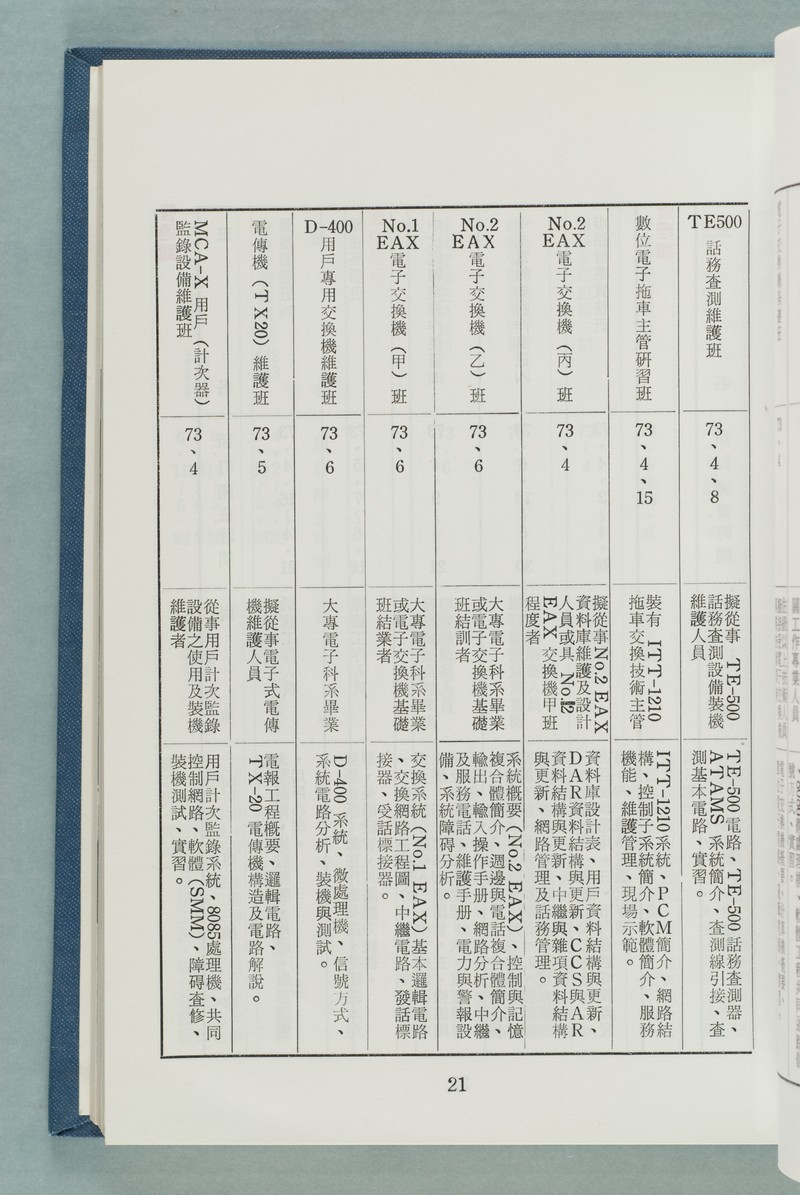 TE500 話務查測維護班
73、4、8
擬從事 TE-500
話務查測設備裝機
維護人員
TE-500電路、TE-500話務查測器、
ATAMS 系統簡介、查測線引接、查
測基本電路、實習。
數位電子拖車主管研習班
73、4、15
裝有 ITT-1210
拖車交換技術主管
ITT-1210系統、PCM簡介、網路結
構、控制子系統簡介、軟體簡介、服務
機能、維護管理、現場示範。
No.2 EAX 電子交換機(丙)班
73、4
擬從事No.2 EAX
資料庫維護及設計
人員或具 No.12
EAX 交換機甲班
程度者
資料庫設計表、用戶資料結構與更新、
DAR資料結構與更新、CCS與AR
資料結構與更新、中繼與雜項資料結構
與更新、網路管理及話務管理。
No.2 EAX 電子交換機(乙)班
73、6
大專電子科系畢業
或電子交換機基礎
班結訓者
系統概要(No.2 EAX)、控制與記憶
複合體簡介、週邊與電話複合體簡介、
輸出、輸入操作手册、網路分析、中繼
及服務電話、維護手册、電力與警報設
備、系統障碍分析。
No.1 EAX 電子交換機(甲)班
73、6
大專電子科系畢業
或電子交換機基礎
班結業者
交換系統(No.1 EAX)基本邏輯電路
、交換網路工程圖、中繼電路、發話標
接器、受話標接器。
D-400 用戶專用交換機維護班
73、6
大專電子科系畢業
D-400 系統、微處理機、信號方式、
系統電路分析、裝機與測試。
電傳機(TX20)維護班
73、5
擬從事電子式電傳
機維護人員
電報工程概要、邏輯電路、
TX-20 電傳機構造及電路解說。
MCA-X 用戶(計次器)
監錄設備維護班
73、4
從事用戶計次監錄
設備之使用及裝機
維護者
用戶計次監錄系統、8085處理機、共同
控制網路、軟體(SMM)、障碍查修、
裝機測試、實習。
21